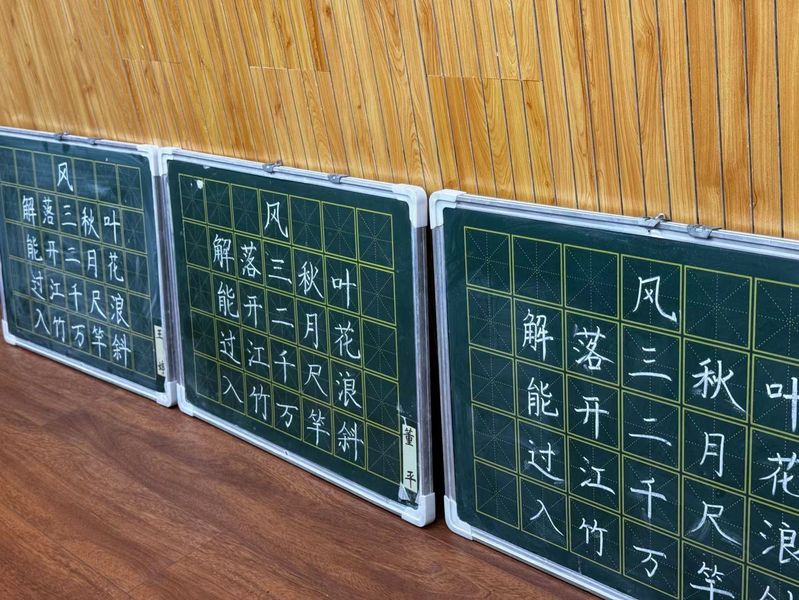 风
解落三秋叶
能开二月花
过江千尺浪
入竹万竿斜
王
风
解落三秋叶
能开二月花
过江千尺浪
入竹万竿斜
董平
风
解落三秋叶
能开二月花
过江千尺浪
入竹万竿